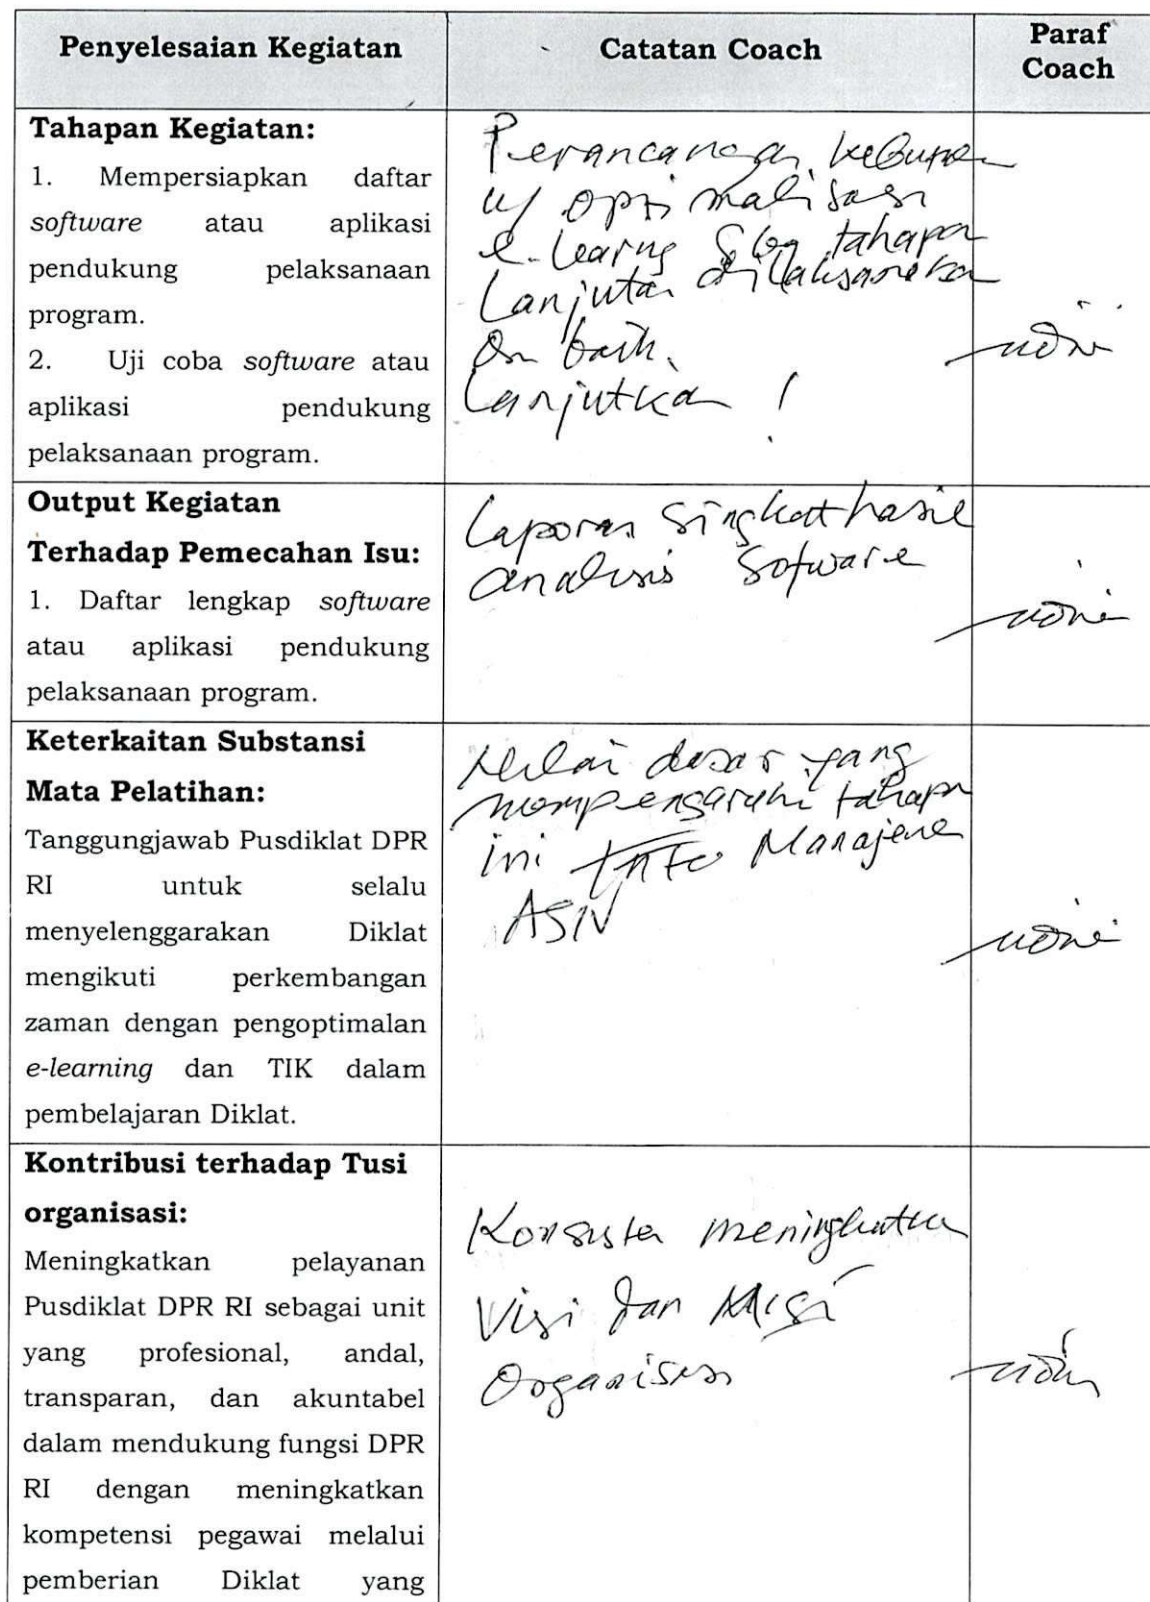 Penyelesaian Kegiatan
Catatan Coach
Paraf
Coach
Tahapan Kegiatan:
1. Mempersiapkan daftar
software atau aplikasi
pendukung pelaksanaan
program.
2. Uji coba software atau
aplikasi pendukung
pelaksanaan program.
Perancangan
u/ optimalisasi
e-learng sbg tahapan
Lanjutan dilaksanakan
baik.
Lanjutkan !
Output Kegiatan
Terhadap Pemecahan Isu:
1. Daftar lengkap software
atau aplikasi pendukung
pelaksanaan program.
Laporan Singkat hasil
analisis Sofware
Keterkaitan Substansi
Mata Pelatihan:
Tanggungjawab Pusdiklat DPR
RI untuk selalu
menyelenggarakan Diklat
mengikuti perkembangan
zaman dengan pengoptimalan
e-learning dan TIK dalam
pembelajaran Diklat.
Nilai dasar yang
mempengaruhi tahapan
ini Manajemen
ASN
Kontribusi terhadap Tusi
organisasi:
Meningkatkan pelayanan
Pusdiklat DPR RI sebagai unit
yang profesional, andal,
transparan, dan akuntabel
dalam mendukung fungsi DPR
RI dengan meningkatkan
kompetensi pegawai melalui
pemberian Diklat yang
Konsisten meningkatkan
Visi dan Misi
Organisasi